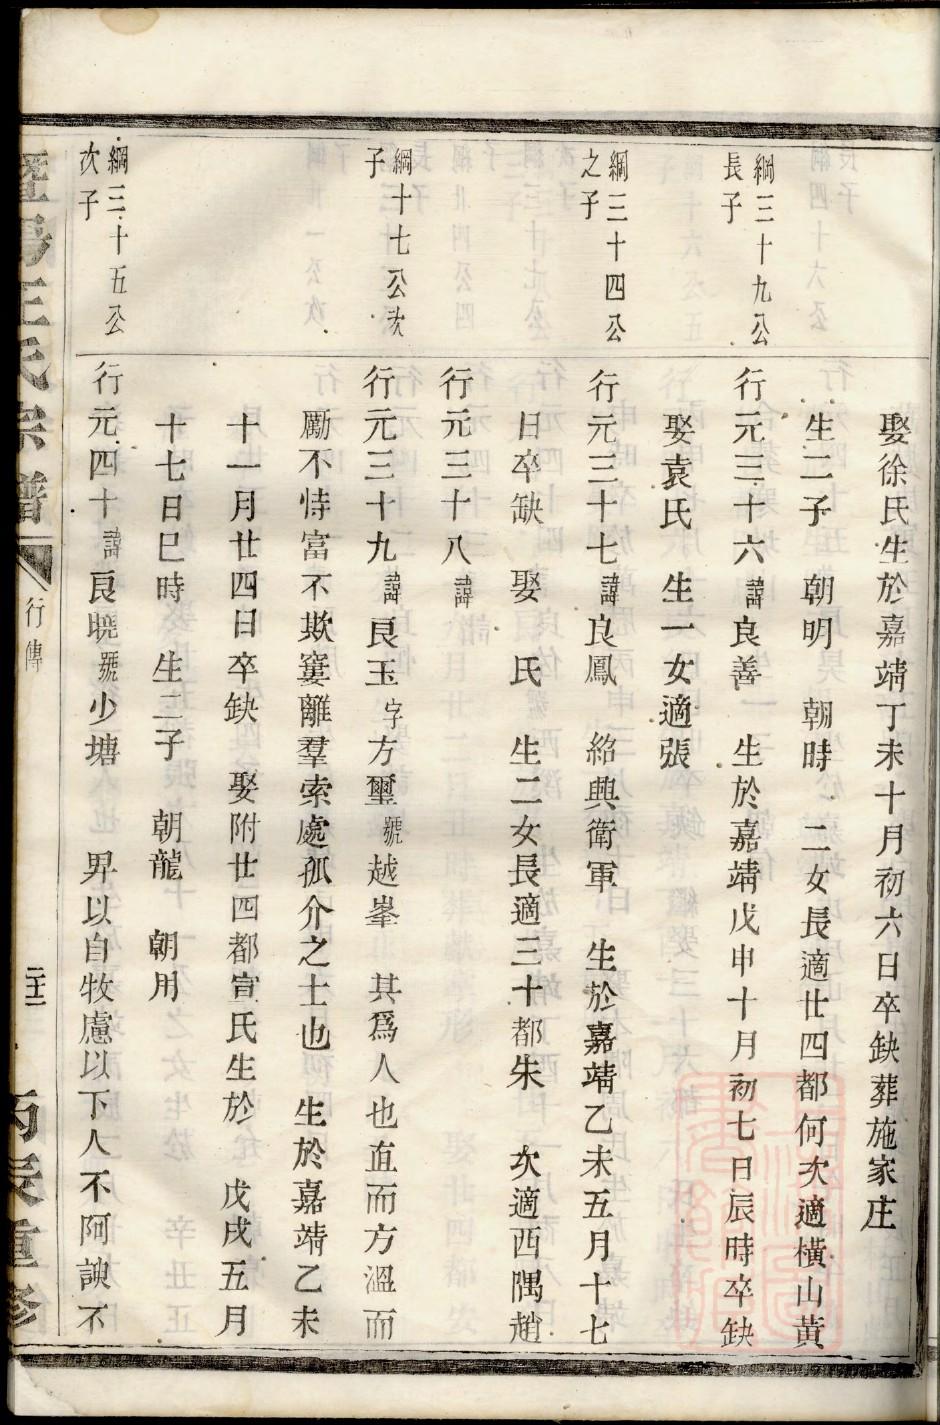 娶徐氏生於嘉靖丁未十月初六日卒缺葬施家庄
生二子　朝明　朝時　二女長適廿四都何次適橫山黃
綱三十九公
長子
行元三十六諱良善　生於嘉靖戊申十月初七日辰時卒缺
娶袁氏　生一女適張
綱三十四公
之子
行元三十七諱良鳳　紹興衛軍　生於嘉靖乙未五月十七
日卒缺　娶　氏　生二女長適三十都朱　次適西隅趙
行元三十八諱
綱十七公次
子
行元三十九諱良玉字方璽號越峯　其爲人也直而方溫而
勵不恃富不欺寠離羣索處孤介之士也　生於嘉靖乙未
十一月廿四日卒缺　娶附廿四都宣氏生於　戊戌五月
十七日巳時　生二子　朝龍　朝用
綱三十五公
次子
行元四十諱良曉號少塘　昇以自牧慮以下人不阿諛不
暨陽王氏宗譜
行傳
二十三
丙辰重修